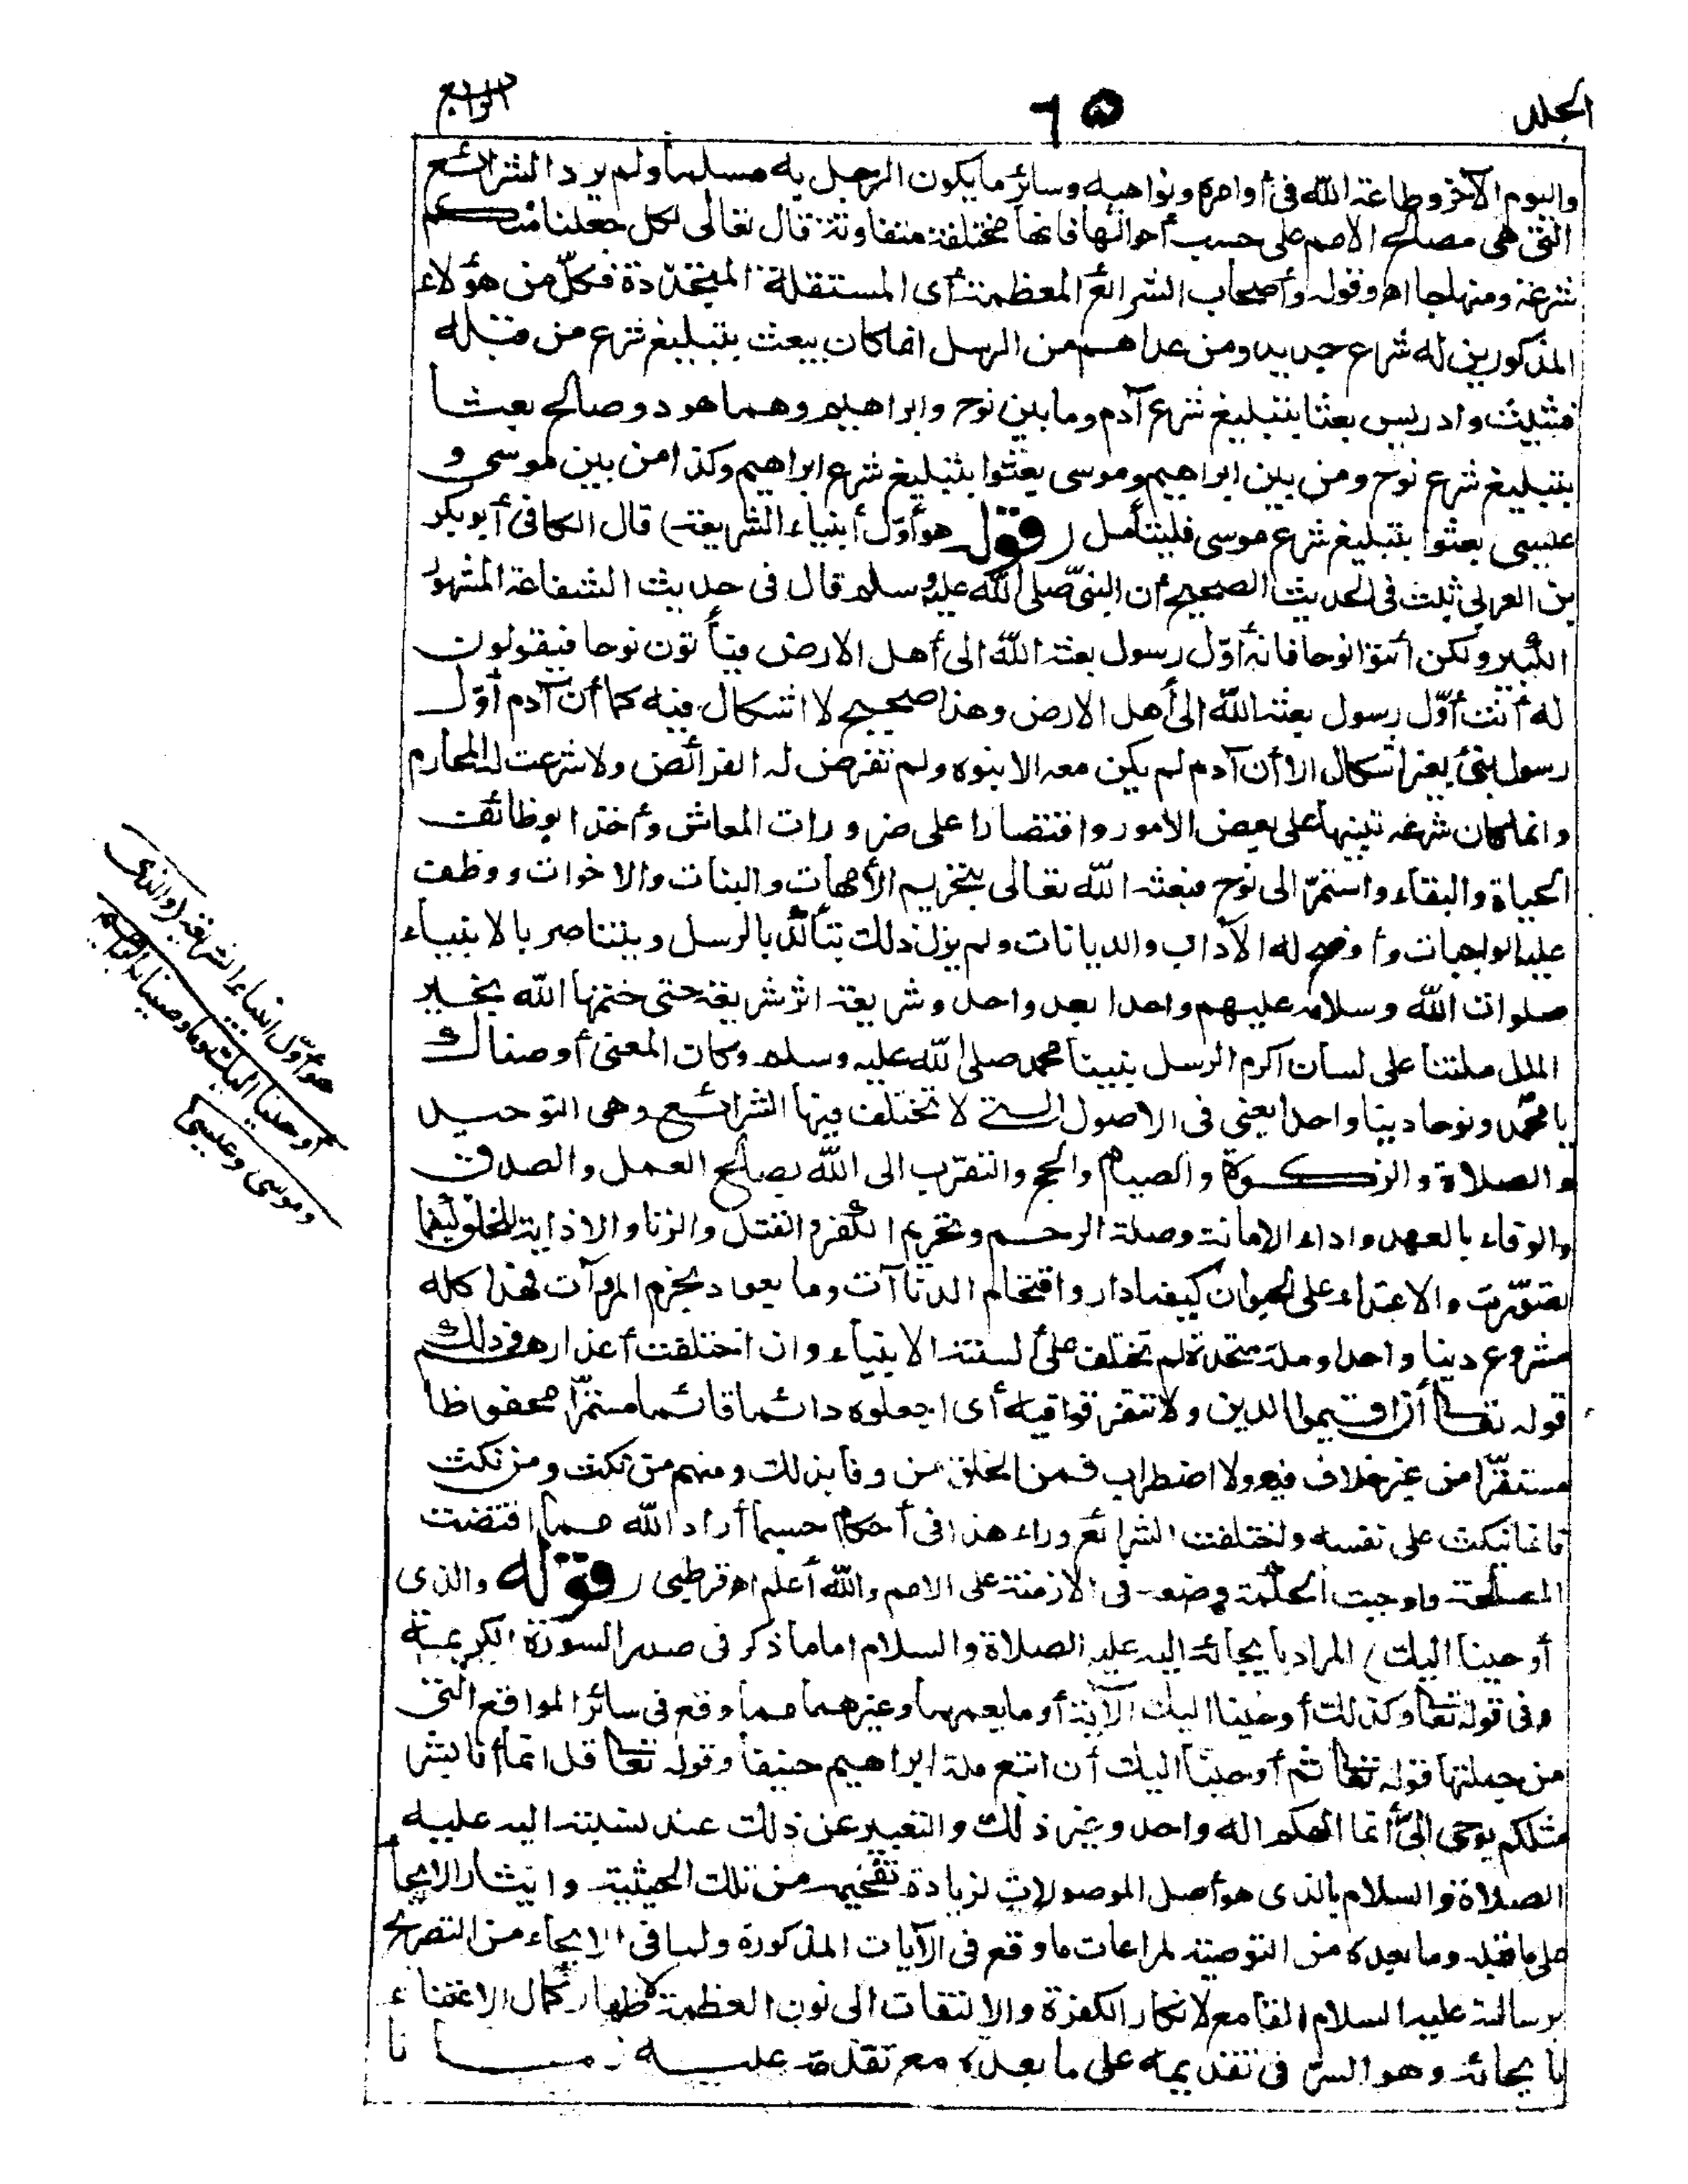 الجلد ٦٥ الرابع
واليوم الآخر وطاعة الله فى أوامره ونواهيه وسائر ما يكون الرجل به مسلما ولم يرد الشرائع
التى هى مصالح الامم على حسب أحوالها فانها مختلفة متفاوتة قال تعالى لكل جعلنا منكم
شرعة ومنهاجا اه وقوله وأصحاب الشرائع المعظمة أى المستقلة المتجددة فكلّ من هؤلاء
المذكورين له شرع جديد ومن عداهم من الرسل انما كان يبعث بتبليغ شرع من قبله
فشيث وادريس بعثا بتبليغ شرع آدم وما بين نوح وابراهيم وهما هود وصالح بعثا
بتبليغ شرع نوح ومن بين ابراهيم وموسى بعثوا بتبليغ شرع ابراهيم وكذا من بين موسى و
عيسى بعثوا بتبليغ شرع موسى فليتأمل (قوله هو أوّل أنبياء الشريعة) قال القاضى أبو بكر
بن العربى ثبت فى الحديث الصحيح أن النبىّ صلى الله عليه وسلم قال فى حديث الشفاعة المشهور
الكبير ولكن ائتوا نوحا فانه أوّل رسول بعثه الله الى أهل الارض فيأتون نوحا فيقولون
له أنت أوّل رسول بعثه الله الى أهل الارض وهذا صحيح لا اشكال فيه كما أن آدم أوّل
رسول نبئ بغير اشكال الا أن آدم لم يكن معه الا بنوه ولم تفرض له الفرائض ولا شرعت له المحارم
وانما كان شرعه تنبيها على بعض الأمور واقتصارا على ضرورات المعاش وأخذا بوظائف
الحياة والبقاء واستمرّ الى نوح فبعثه الله تعالى بتحريم الأمهات والبنات والاخوات ووظف
عليه الواجبات وأوضح له الآداب والديانات ولم يزل ذلك يتأكد بالرسل ويتناصر بالانبياء
صلوات الله وسلامه عليهم واحدا بعد واحد وشريعة اثر شريعة حتى ختمها الله بخير
الملل ملتنا على لسان أكرم الرسل نبينا محمد صلى الله عليه وسلم وكان المعنى أوصيناك
يا محمد ونوحا دينا واحدا يعنى فى الاصول التى لا تختلف فيها الشرائع وهى التوحيد
والصلاة والزكوة والصيام والحج والتقرّب الى الله بصالح العمل والصدق
والوفاء بالعهد واداء الامانة وصلة الرحم وتحريم الكفر والقتل والزنا والاذاية للخلق كيفما
تصوّرت والاعتداء على الحيوان كيفما دار واقتحام الدناآت وما يعود بخرم المروآت فهذا كله
مشروع دينا واحدا وملة متحدة لم تختلف على ألسنة الانبياء وان اختلفت أعذارهم فى ذلك
قوله تعالى أن اقيموا الدين ولا تتفرقوا فيه أى اجعلوه دائما قائما مستمرّا محفوظا
مستقرّا من غير خلاف فيه ولا اضطراب فمن الخلق من وفا بذلك ومنهم من نكث ومن نكث
فانما ينكث على نفسه واختلفت الشرائع وراء هذا فى أحكام حسبما أراد الله مما اقتضت
المصلحة وأوجبت الحكمة وضعه فى الازمنة على الامم والله أعلم اه قرطبى (قوله والذى
أوحينا اليك) المراد بايحائه اليه عليه الصلاة والسلام اما ما ذكر فى صدر السورة الكريمة
وفى قوله تعالى وكذلك أوحينا اليك الآية أو ما يعمهما وغيرهما مما وقع فى سائر المواقع التى
من جملتها قوله تعالى ثم أوحينا اليك أن اتبع ملة ابراهيم حنيفا وقوله تعالى قل انما أنا بشر
مثلكم يوحى الىّ أنما الهكم اله واحد وغير ذلك والتعبير عن ذلك عند نسبته اليه عليه
الصلاة والسلام بالذى هو أصل الموصولات لزيادة تفخيمه من تلك الحيثية وايثار الايحا
على ما قبله وما بعده من التوصية لمراعات ما وقع فى الآيات المذكورة ولما فى الايحاء من التصريح
برسالته عليه السلام القامع لانكار الكفرة والالتفات الى نون العظمة لاظهار كمال الاعتناء
بايحائه وهو السرّ فى تقديمه على ما بعده مع تقدمه عليه زمانا
هو أوّل أنبياء الشريعة (والذى
أوحينا اليك وما وصينا به ابراهيم
وموسى وعيسى)